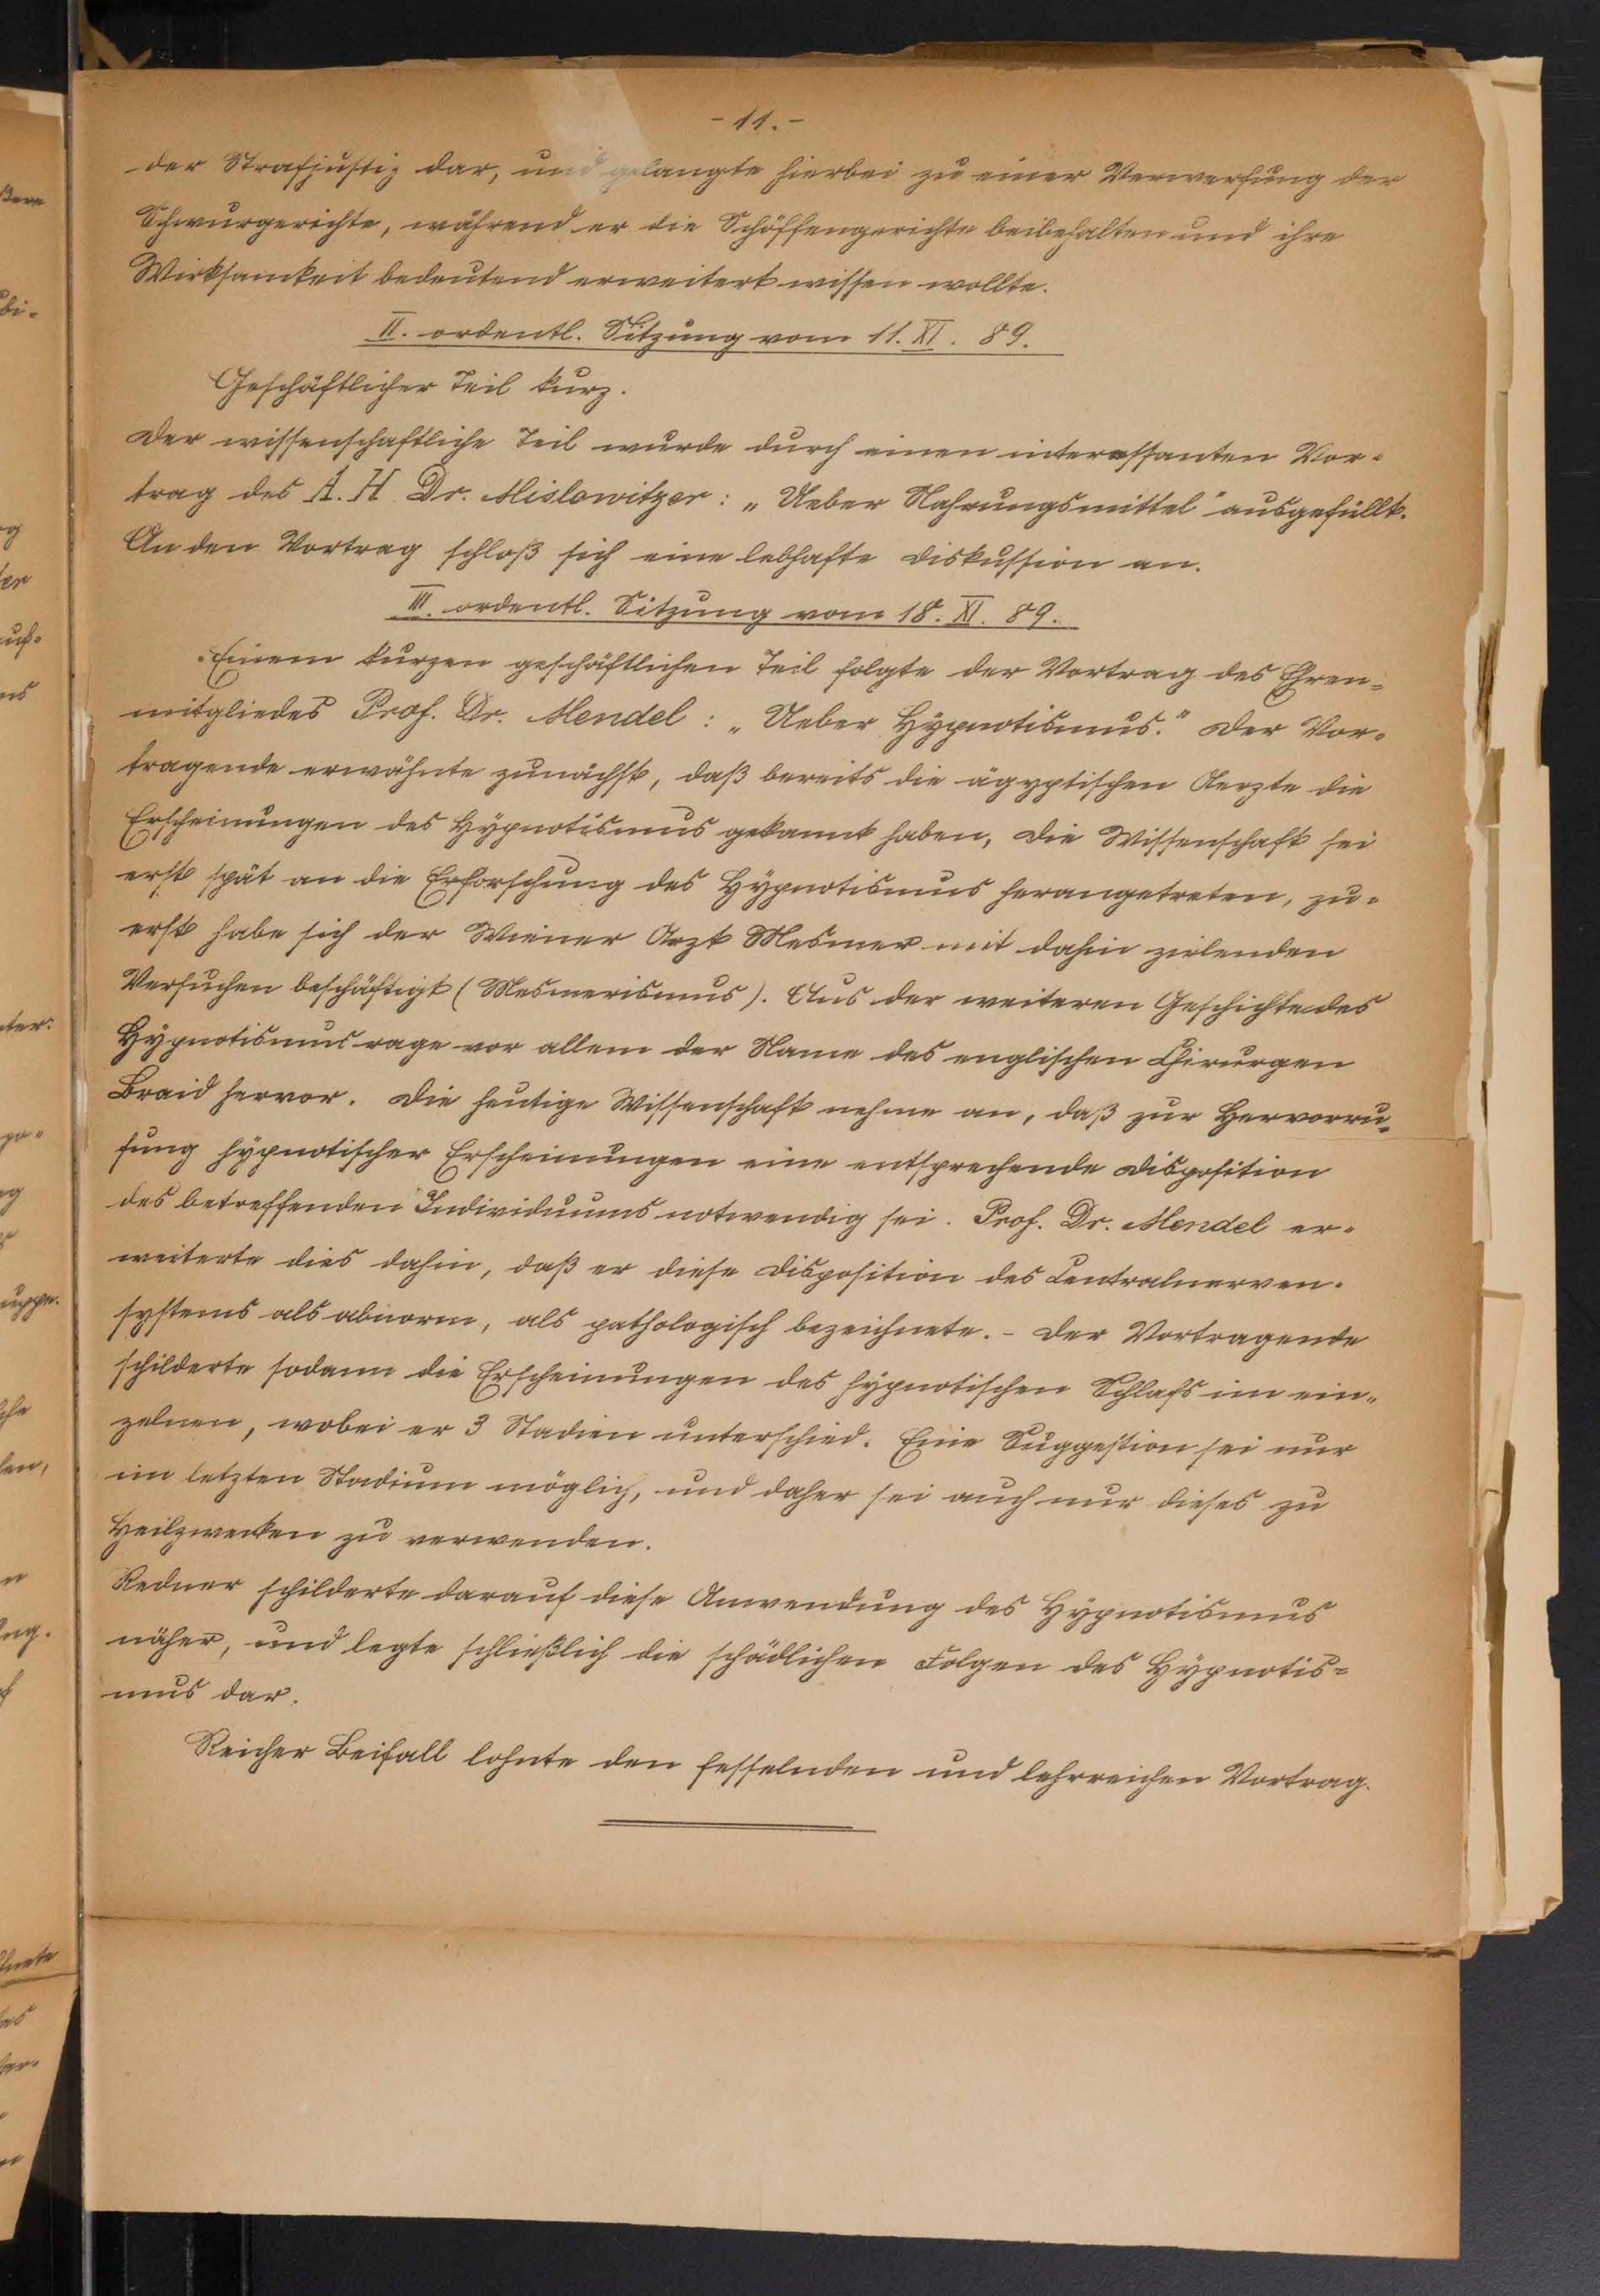 - 11. -
der Strafjustiz dar, und gelangte hierbei zu einer Verwerfung der
Schwurgerichte, während er die Schöffengerichte beibehalten und ihre
Wirksamkeit bedeutend erweitert wissen wollte.
II. ordentl. Sitzung vom 11. XI. 89.
Geschäftlicher Teil kurz.
Der wissenschaftliche Teil wurde durch einen interessanten Vor-
trag des A. H. Dr. Mislowitzer: „Ueber Nahrungsmittel" ausgefüllt.
An den Vortrag schloß sich eine lebhafte Diskussion an.
III. ordentl. Sitzung vom 18. XI. 89.
Einem kurzen geschäftlichen Teil folgte der Vortrag des Ehren-
mitgliedes Prof. Dr. Mendel: „Ueber Hypnotismus." Der Vor-
tragende erwähnte zunächst, daß bereits die ägyptischen Aerzte die
Erscheinungen des Hypnotismus gekannt haben, die Wissenschaft sei
erst spät an die Erforschung des Hypnotismus herangetreten, zu-
erst habe sich der Wiener Arzt Mesmer mit dahin zielenden
Versuchen beschäftigt (Mesmerismus). Aus der weiteren Geschichte des
Hypnotismus rage vor allem der Name des englischen Chirurgen
Braid hervor. Die heutige Wissenschaft nehme an, daß zur Hervorru-
fung hypnotischer Erscheinungen eine entsprechende Disposition
des betreffenden Individuums notwendig sei. Prof. Dr. Mendel er-
weiterte dies dahin, daß er diese Disposition des Centralnerven-
systems als abnorm, als pathologisch bezeichnete. - Der Vortragende
schilderte sodann die Erscheinungen des hypnotischen Schlafs im ein-
zelnen, wobei er 3 Stadien unterschied. Eine Suggestion sei nur
im letzten Stadium möglich, und daher sei auch nur dieses zu
Heilzwecken zu verwenden.
Redner schilderte darauf diese Anwendung des Hypnotismus
näher, und legte schließlich die schädlichen Folgen des Hypnotis-
mus dar.
Reicher Beifall lohnte den fesselnden und lehrreichen Vortrag.